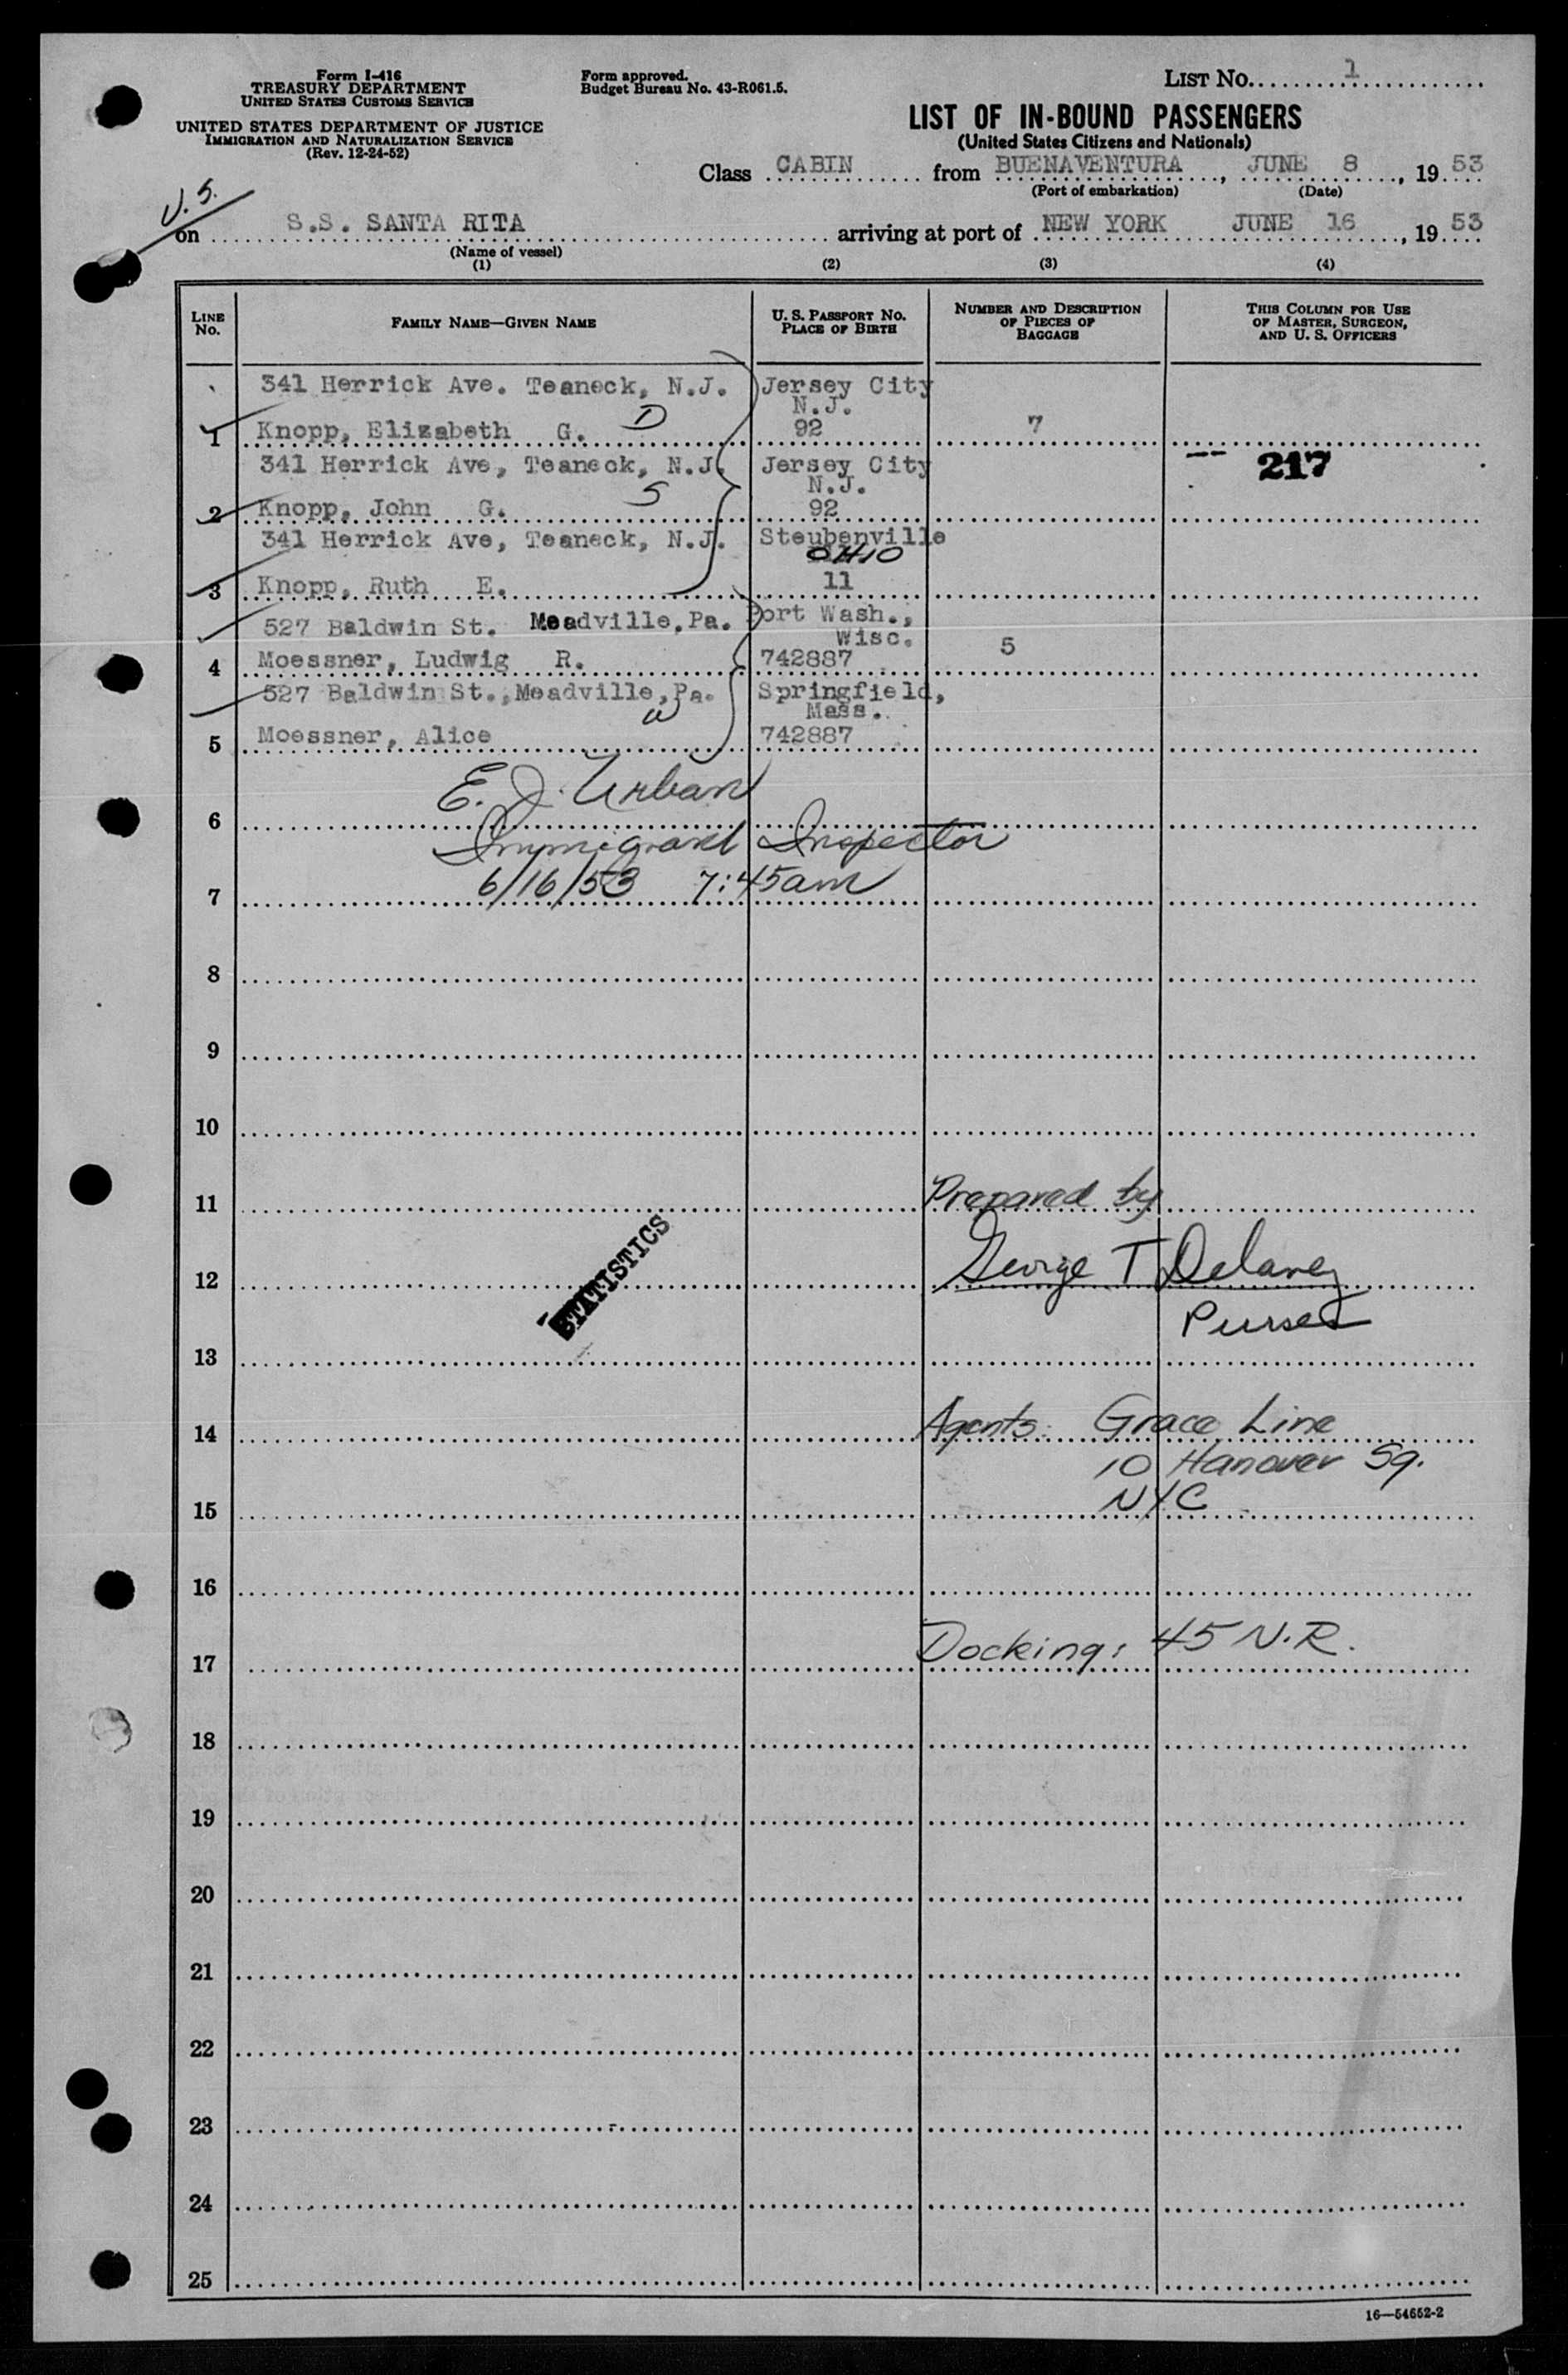 Form I-416
TREASURY DEPARTMENT
UNITED STATES CUSTOMS SERVICE
UNITED STATES DEPARTMENT OF JUSTICE
IMMIGRATION AND NATURALIZATION SERVICE
(Rev. 12-24-52)
Form approved.
Budget Bureau No. 43-R061.5.
LIST NO. 1
LIST OF IN-BOUND PASSENGERS
(United States Citizens and Nationals)
Class CABIN from BUENAVENTURA, JUNE 8, 1953
(Port of embarkation) (Date)
U.S.
on S.S. SANTA RITA arriving at port of NEW YORK JUNE 16, 1953
(Name of vessel)
(1) (2) (3) (4)
LINE NO. FAMILY NAME—GIVEN NAME U. S. PASSPORT NO. PLACE OF BIRTH NUMBER AND DESCRIPTION OF PIECES OF BAGGAGE THIS COLUMN FOR USE OF MASTER, SURGEON, AND U. S. OFFICERS
341 Herrick Ave. Teaneck, N.J. Jersey City
N.J.
1 Knopp, Elizabeth G. D 92 7
341 Herrick Ave, Teaneck, N.J. Jersey City -- 217
N.J.
2 Knopp, John G. S 92
341 Herrick Ave, Teaneck, N.J. Steubenville
OHIO
3 Knopp, Ruth E. 11
527 Baldwin St. Meadville, Pa. Port Wash.,
Wisc.
4 Moessner, Ludwig R. 742887 5
527 Baldwin St., Meadville, Pa. Springfield,
Mass.
W
5 Moessner, Alice 742887
E. J. Urban
6
Immigrant Inspector
6/16/53 7:45am
7
8
9
10
Prepared by
11
STATISTICS
George T Delaney
12
Purser
13
Agents: Grace Line
14
10 Hanover Sq.
NYC
15
16
Docking: 45 N.R.
17
18
19
20
21
22
23
24
25
16—54652-2